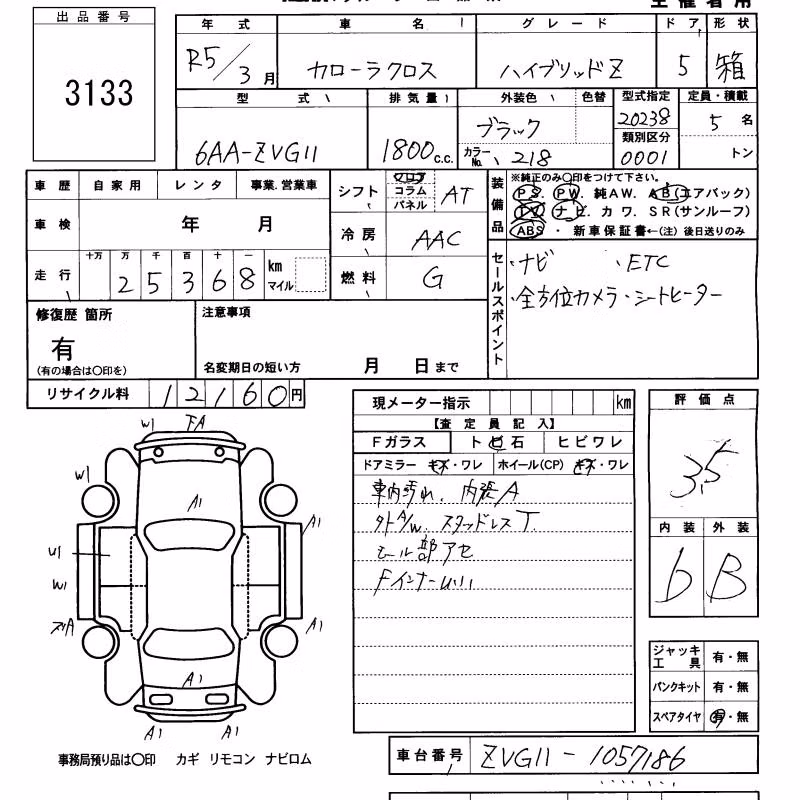 出品番号
3133
年式 車名 グレード ドア 形状
R5/3月 カローラクロス ハイブリッドZ 5 箱
型式 排気量 外装色 色替 型式指定 定員・積載
6AA-ZVG11 1800c.c. ブラック カラーNo. 218 20238 5名
類別区分 0001 トン
車歴 自家用 レンタ 事業.営業車
シフト フロア コラム パネル AT
装備品 ※純正のみ〇印をつけて下さい。
PS. PW. 純AW. AB(エアバック)
TV. ナビ. カワ. SR(サンルーフ)
ABS ・ 新車保証書←(注) 後日送りのみ
車検 年 月
冷房 AAC
走行 十万 万 千 百 十 一 km マイル
25368
燃料 G
セールスポイント
・ナビ ・ETC
・全方位カメラ・シートヒーター
修復歴 箇所
有
(有の場合は〇印を)
注意事項
名変期日の短い方 月 日まで
リサイクル料 12160円
現メーター指示 km
【査定員記入】
Fガラス トビ石 ヒビワレ
ドアミラー キズ・ワレ ホイール(CP) キズ・ワレ
車内汚れ. 内張A
外A/W. スタッドレスT.
モール部アセ
評価点
3.5
内装 外装
b B
W1 FA
W1
A1
A1
U1
W1
A1
A1
A1 A1
ジャッキ工具 有・無
パンクキット 有・無
スペアタイヤ 有・無
事務局預り品は〇印 カギ リモコン ナビロム
車台番号 ZVG11-1057186